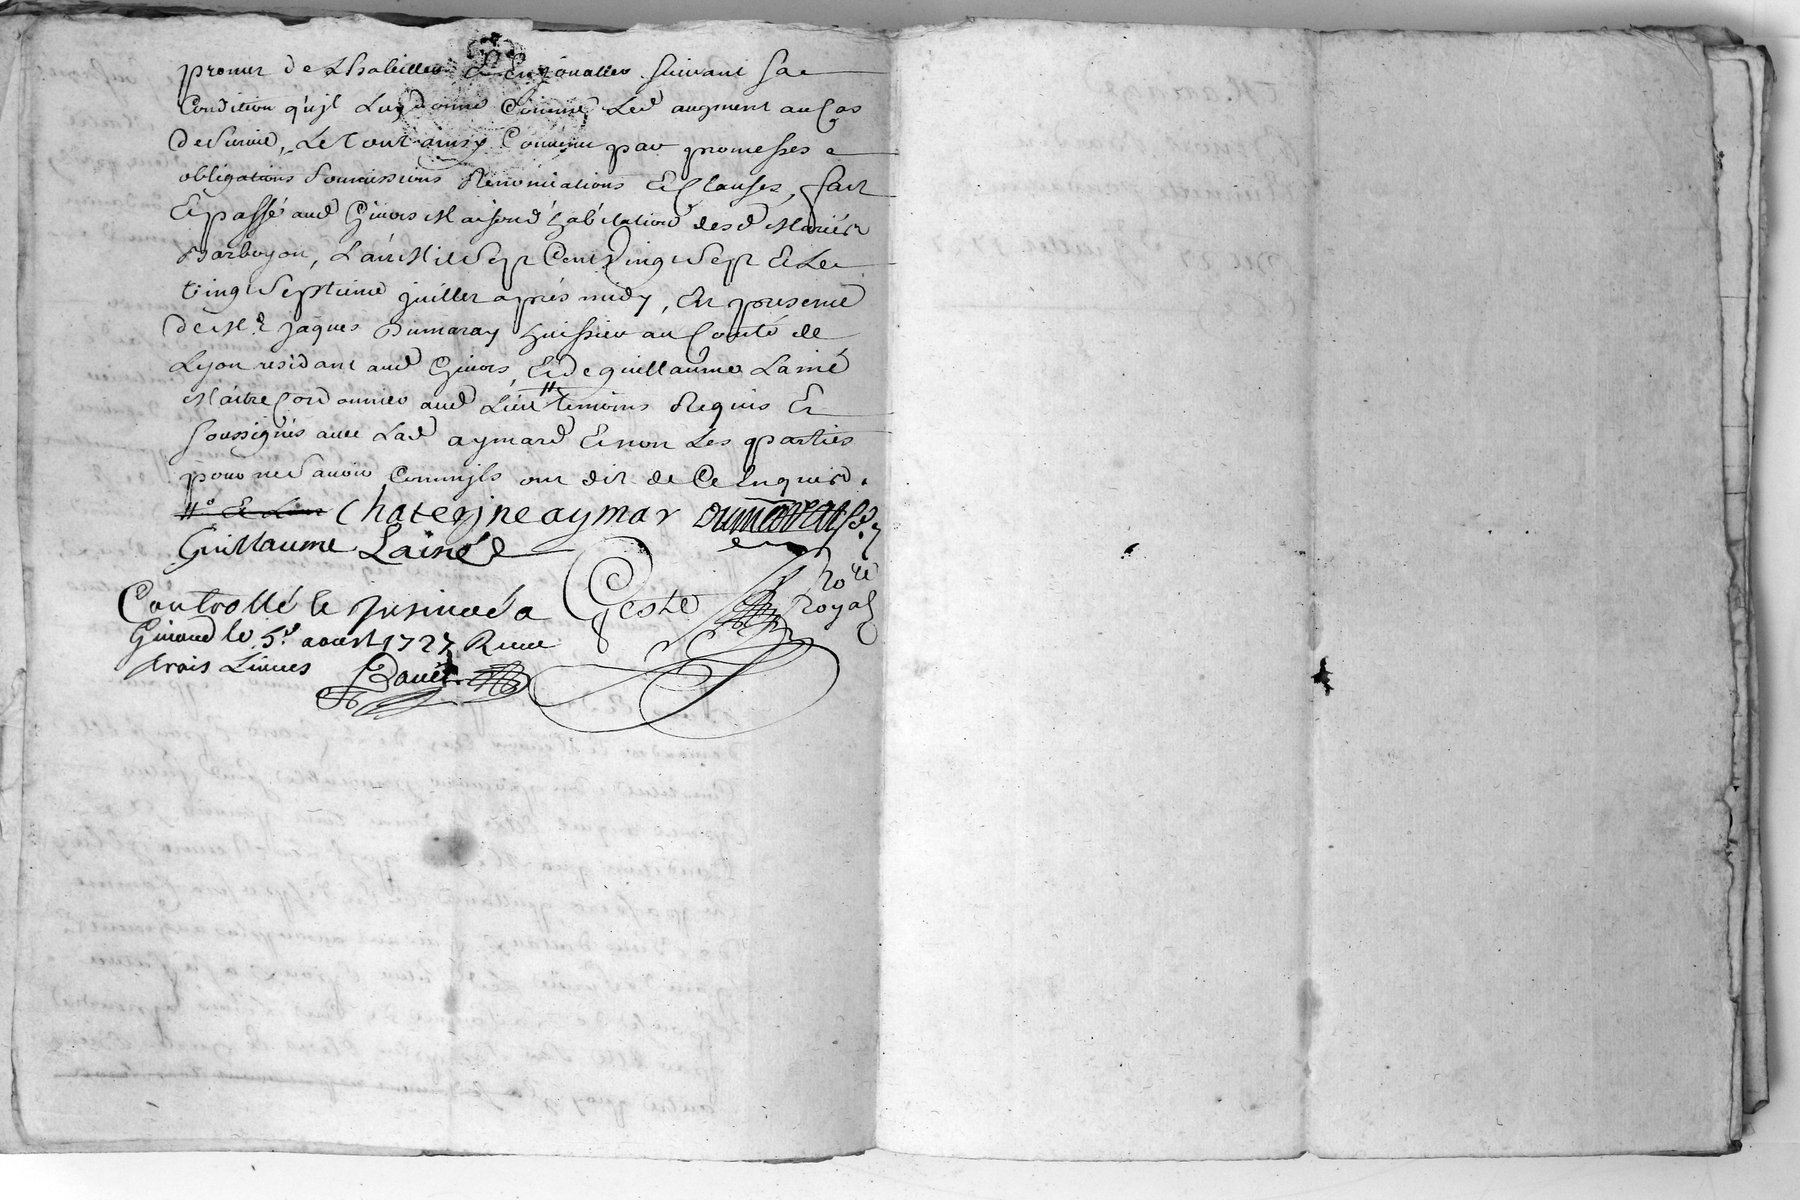 promet de L'habiller & Enjoualler suivant sa
Condition qu'jl Luy donne Comme Led augment au Cas
de survie, Le tout ainsy Convenu par promesses
obligations soumissions Renonciations & Clauses, fait
& passé aud Givors Maison d'habitation desd Mariés
Barboyon, L'an Mil Sept Cent Vingt Sept & Le
vingt Septieme juillet aprés midy, En presence
de Mr. Jaques Dumaray huissier au Comté de
Lyon residant aud Givors, & de guillaume Lainé
Maitre Cordonnier aud Lieu temoins Requis Et
soussignés avec Lad aymard & non Les parties
pour ne savoir Comm'jls ont dit de Ce Enquis.
Chaterjne aymar
Guillaume Lainé
Controllé & Insinué a
Geste
No.re
Royal
Givord le 5e. aoust 1727 Receu
trois Livres